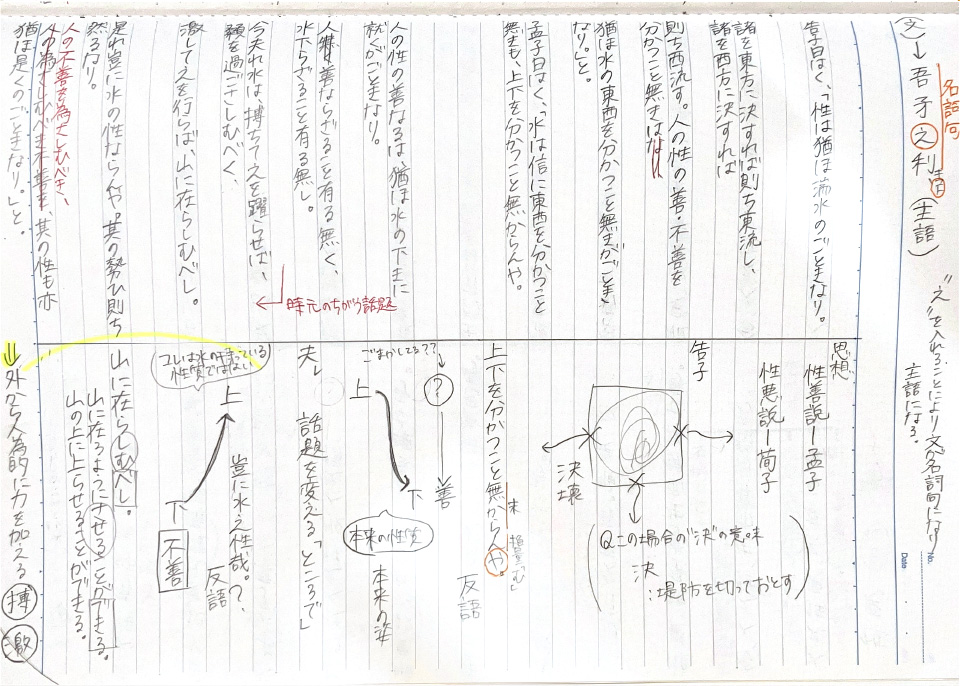 名詞句
文→吾子之利(主語)
"之"を入れることにより文が名詞句になり
主語になる。
No.
Date
告子曰はく、「性は猶ほ湍水のごときなり。
諸を東方に決すれば則ち東流し、
諸を西方に決すれば
則ち西流す。人の性の善・不善を
分かつこと無きは
猶ほ水の東西を分かつこと無きがごとき
なり。」と。
孟子曰はく、「水は信に東西を分かつこと
無きも、上下を分かつこと無からんや。
人の性の善なるは、猶ほ水の下きに
就くがごときなり。
人善ならざること有る無く、
水下らざること有る無し。
今夫れ水は、搏ちて之を躍らせば、
顙を過ごさしむべく、
激して之を行らば、山に在らしむべし。
是れ豈に水の性ならんや。其の勢ひ則ち
然るなり。
人の不善を為さしむべき、
人の為さしむべき不善を、其の性も亦
猶ほ是くのごときなり。」と。
時元のちがう話題
思想
性善説ー孟子
性悪説ー荀子
告子
決壊
Q この場合の"決"の意味
決
:堤防を切っておとす
上下を分かつこと無からんや。
未
推量「む」
反語
ごまかしてる??
?
善
上
下
本来の性質
本来の姿
夫レ
話題を変える「ところで」
豈に水之性哉。?
反語
コレは水の持っている
性質ではない
上
下
不善
山に在らしむべし。
山に在るようにさせることができる。
山の上に上らせることができる。
⇒外から人為的に力を加える 搏 激